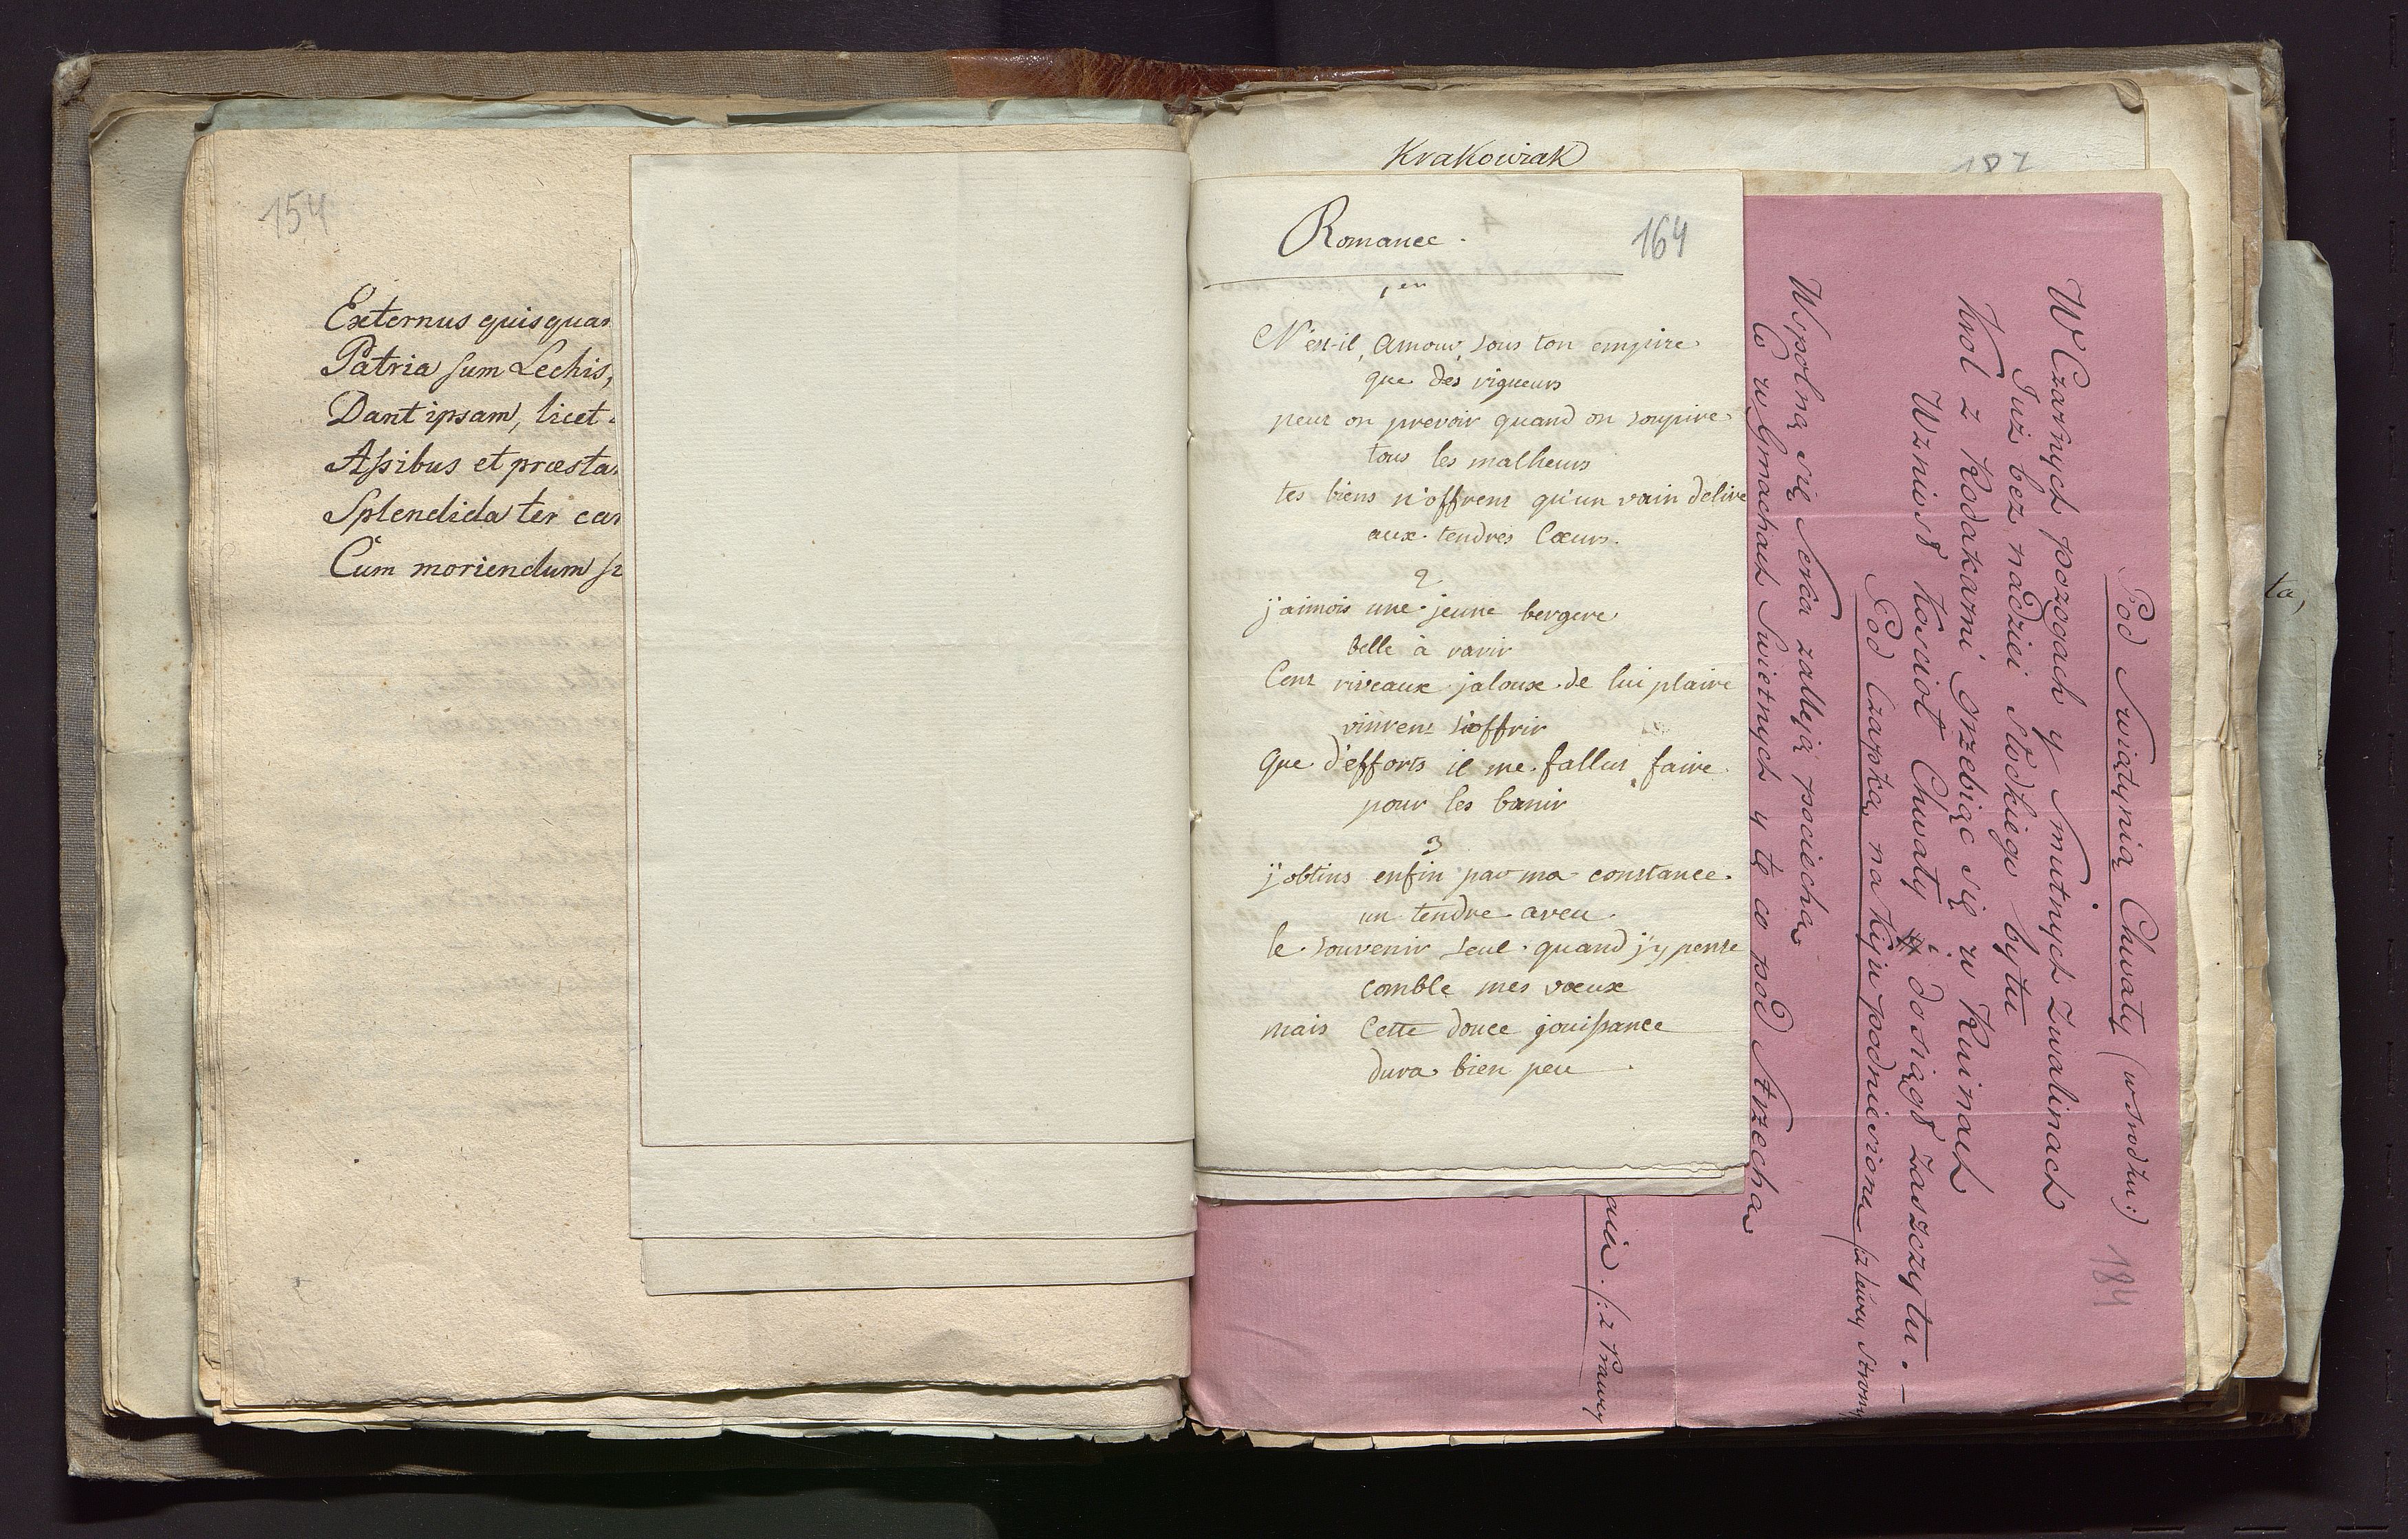 154
Externus quisquam
Patria sum Lechis,
Dant ipsam, licet
Assibus et præsta
Splendida ter car
Cum moriendum
Krakowiak
187
Romance.
164
1er
N'est-il, Amour, sous ton empire
que des rigueurs
peut on prevoir quand on soupire
tous les malheurs
tes biens n'offrent qu'un vain délire
aux tendres Cœurs.
2
j'aimois une jeune bergere
belle à ravir
Cent riveaux jaloux de lui plaire
vinrent s'offrir
que d'efforts il me fallut faire
pour les banir
3
j'obtins enfin par ma constance
un tendre aveu
le souvenir seul quand j'y pense
comble mes vœux
mais Cette douce jouissance
dura bien peu
Pod Swiątynią Chwały (w srodku:)
184
W Czarnych pozogach y smutnych zwalinach
Już bez nadziei słodkiego bytu
Krol z Rodakami grzebiąc się w Ruinach
Wzniosł Koscioł Chwały i dosiągł zaszczytu. —
Pod Czapką na Kiju podniesioną /:z lewey strony
Wspolną się serca zalleją pociechą
Co w Gmachach swietnych y te co pod strzechą
/: z Prawey
ta,